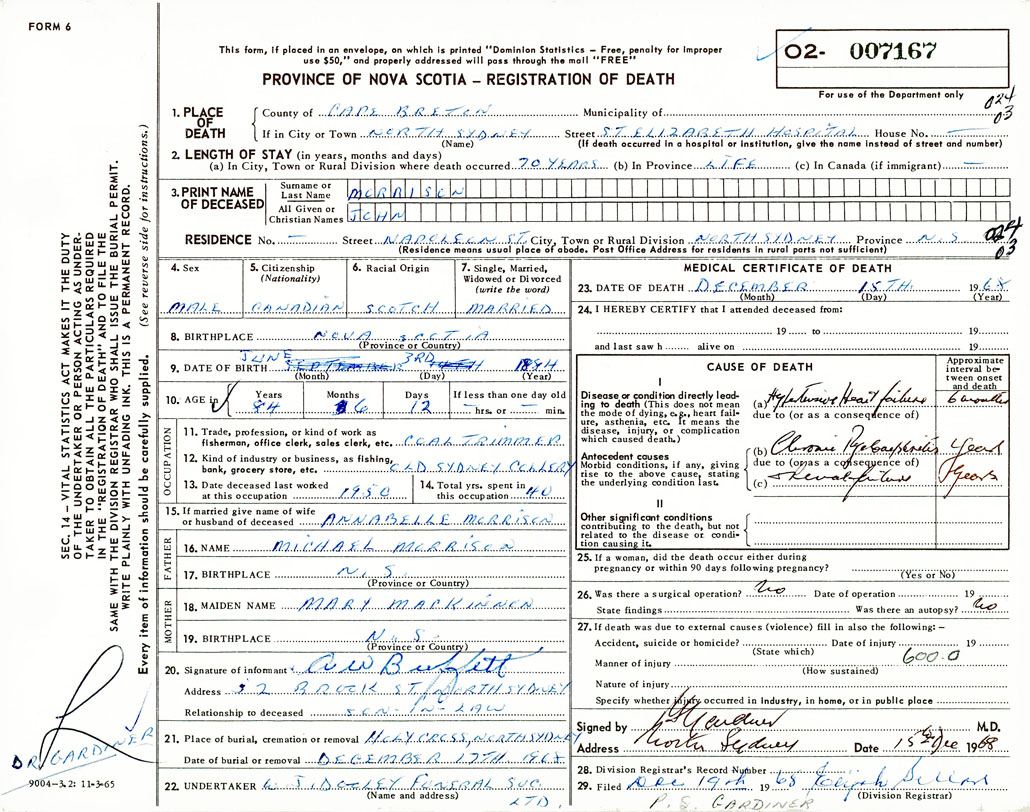 FORM 6
This form, if placed in an envelope, on which is printed "Dominion Statistics – Free, penalty for improper
use $50," and properly addressed will pass through the mail "FREE"
PROVINCE OF NOVA SCOTIA – REGISTRATION OF DEATH
O2- 007167
For use of the Department only
024
03
1. PLACE OF DEATH
County of CAPE BRETON Municipality of
If in City or Town NORTH SYDNEY Street ST ELIZABETH HOSPITAL House No. —
(Name) (If death occurred in a hospital or institution, give the name instead of street and number)
2. LENGTH OF STAY (in years, months and days)
(a) In City, Town or Rural Division where death occurred 70 YEARS (b) In Province LIFE (c) In Canada (if immigrant) —
3. PRINT NAME OF DECEASED
Surname or Last Name MORRISON
All Given or Christian Names JOHN
RESIDENCE No. — Street NAPOLEON ST. City, Town or Rural Division NORTH SYDNEY Province N.S
024
03
(Residence means usual place of abode. Post Office Address for residents in rural parts not sufficient)
4. Sex
MALE
5. Citizenship
(Nationality)
CANADIAN
6. Racial Origin
SCOTCH
7. Single, Married,
Widowed or Divorced
(write the word)
MARRIED
8. BIRTHPLACE NOVA SCOTIA
(Province or Country)
9. DATE OF BIRTH JUNE 3RD 1884
(Month) (Day) (Year)
10. AGE in
Years Months Days If less than one day old
84 6 12 — hrs. or — min.
OCCUPATION
11. Trade, profession, or kind of work as
fisherman, office clerk, sales clerk, etc. COAL TRIMMER
12. Kind of industry or business, as fishing,
bank, grocery store, etc. OLD SYDNEY COLLERY
13. Date deceased last worked
at this occupation 1950
14. Total yrs. spent in
this occupation 40
15. If married give name of wife
or husband of deceased ANNABELLE MORRISON
FATHER
16. NAME MICHAEL MORRISON
17. BIRTHPLACE N.S.
(Province or Country)
MOTHER
18. MAIDEN NAME MARY MACKINNON
19. BIRTHPLACE N.S.
(Province or Country)
20. Signature of informant
Address 32 BROOK ST. NORTH SYDNEY
Relationship to deceased SON-IN-LAW
21. Place of burial, cremation or removal HOLY CROSS, NORTH SYDNEY
Date of burial or removal DECEMBER 17TH 1968
22. UNDERTAKER DOOLEY FUNERAL SUC. LTD.
(Name and address)
MEDICAL CERTIFICATE OF DEATH
23. DATE OF DEATH DECEMBER 15TH. 1968
(Month) (Day) (Year)
24. I HEREBY CERTIFY that I attended deceased from:
19 to 19
and last saw h alive on 19
CAUSE OF DEATH
Approximate
interval be-
tween onset
and death
I
Disease or condition directly lead-
ing to death (This does not mean
the mode of dying, e.g., heart fail-
ure, asthenia, etc. It means the
disease, injury, or complication
which caused death.)
(a) Hypertensive Heart failure 6 months
due to (or as a consequence of)
Antecedent causes
Morbid conditions, if any, giving
rise to the above cause, stating
the underlying condition last.
(b) Chronic years
due to (or as a consequence of)
(c) years
II
Other significant conditions
contributing to the death, but not
related to the disease or condi-
tion causing it.
25. If a woman, did the death occur either during
pregnancy or within 90 days following pregnancy?
(Yes or No)
26. Was there a surgical operation? No Date of operation 19
State findings Was there an autopsy? No
27. If death was due to external causes (violence) fill in also the following: –
Accident, suicide or homicide? Date of injury 19
(State which)
Manner of injury 600.0
(How sustained)
Nature of injury
Specify whether injury occurred in industry, in home, or in public place
Signed by Gardiner M.D.
Address North Sydney Date 15 Dec 1968
28. Division Registrar's Record Number
29. Filed Dec 19th 1968
(Division Registrar)
P. S. GARDINER
SEC. 14 – VITAL STATISTICS ACT MAKES IT THE DUTY
OF THE UNDERTAKER OR PERSON ACTING AS UNDER-
TAKER TO OBTAIN ALL THE PARTICULARS REQUIRED
IN THE "REGISTRATION OF DEATH" AND TO FILE THE
SAME WITH THE DIVISION REGISTRAR WHO SHALL ISSUE THE BURIAL PERMIT.
WRITE PLAINLY WITH UNFADING INK. THIS IS A PERMANENT RECORD.
Every item of information should be carefully supplied. (See reverse side for instructions.)
DR GARDINER
9004-3.2: 11-3-65